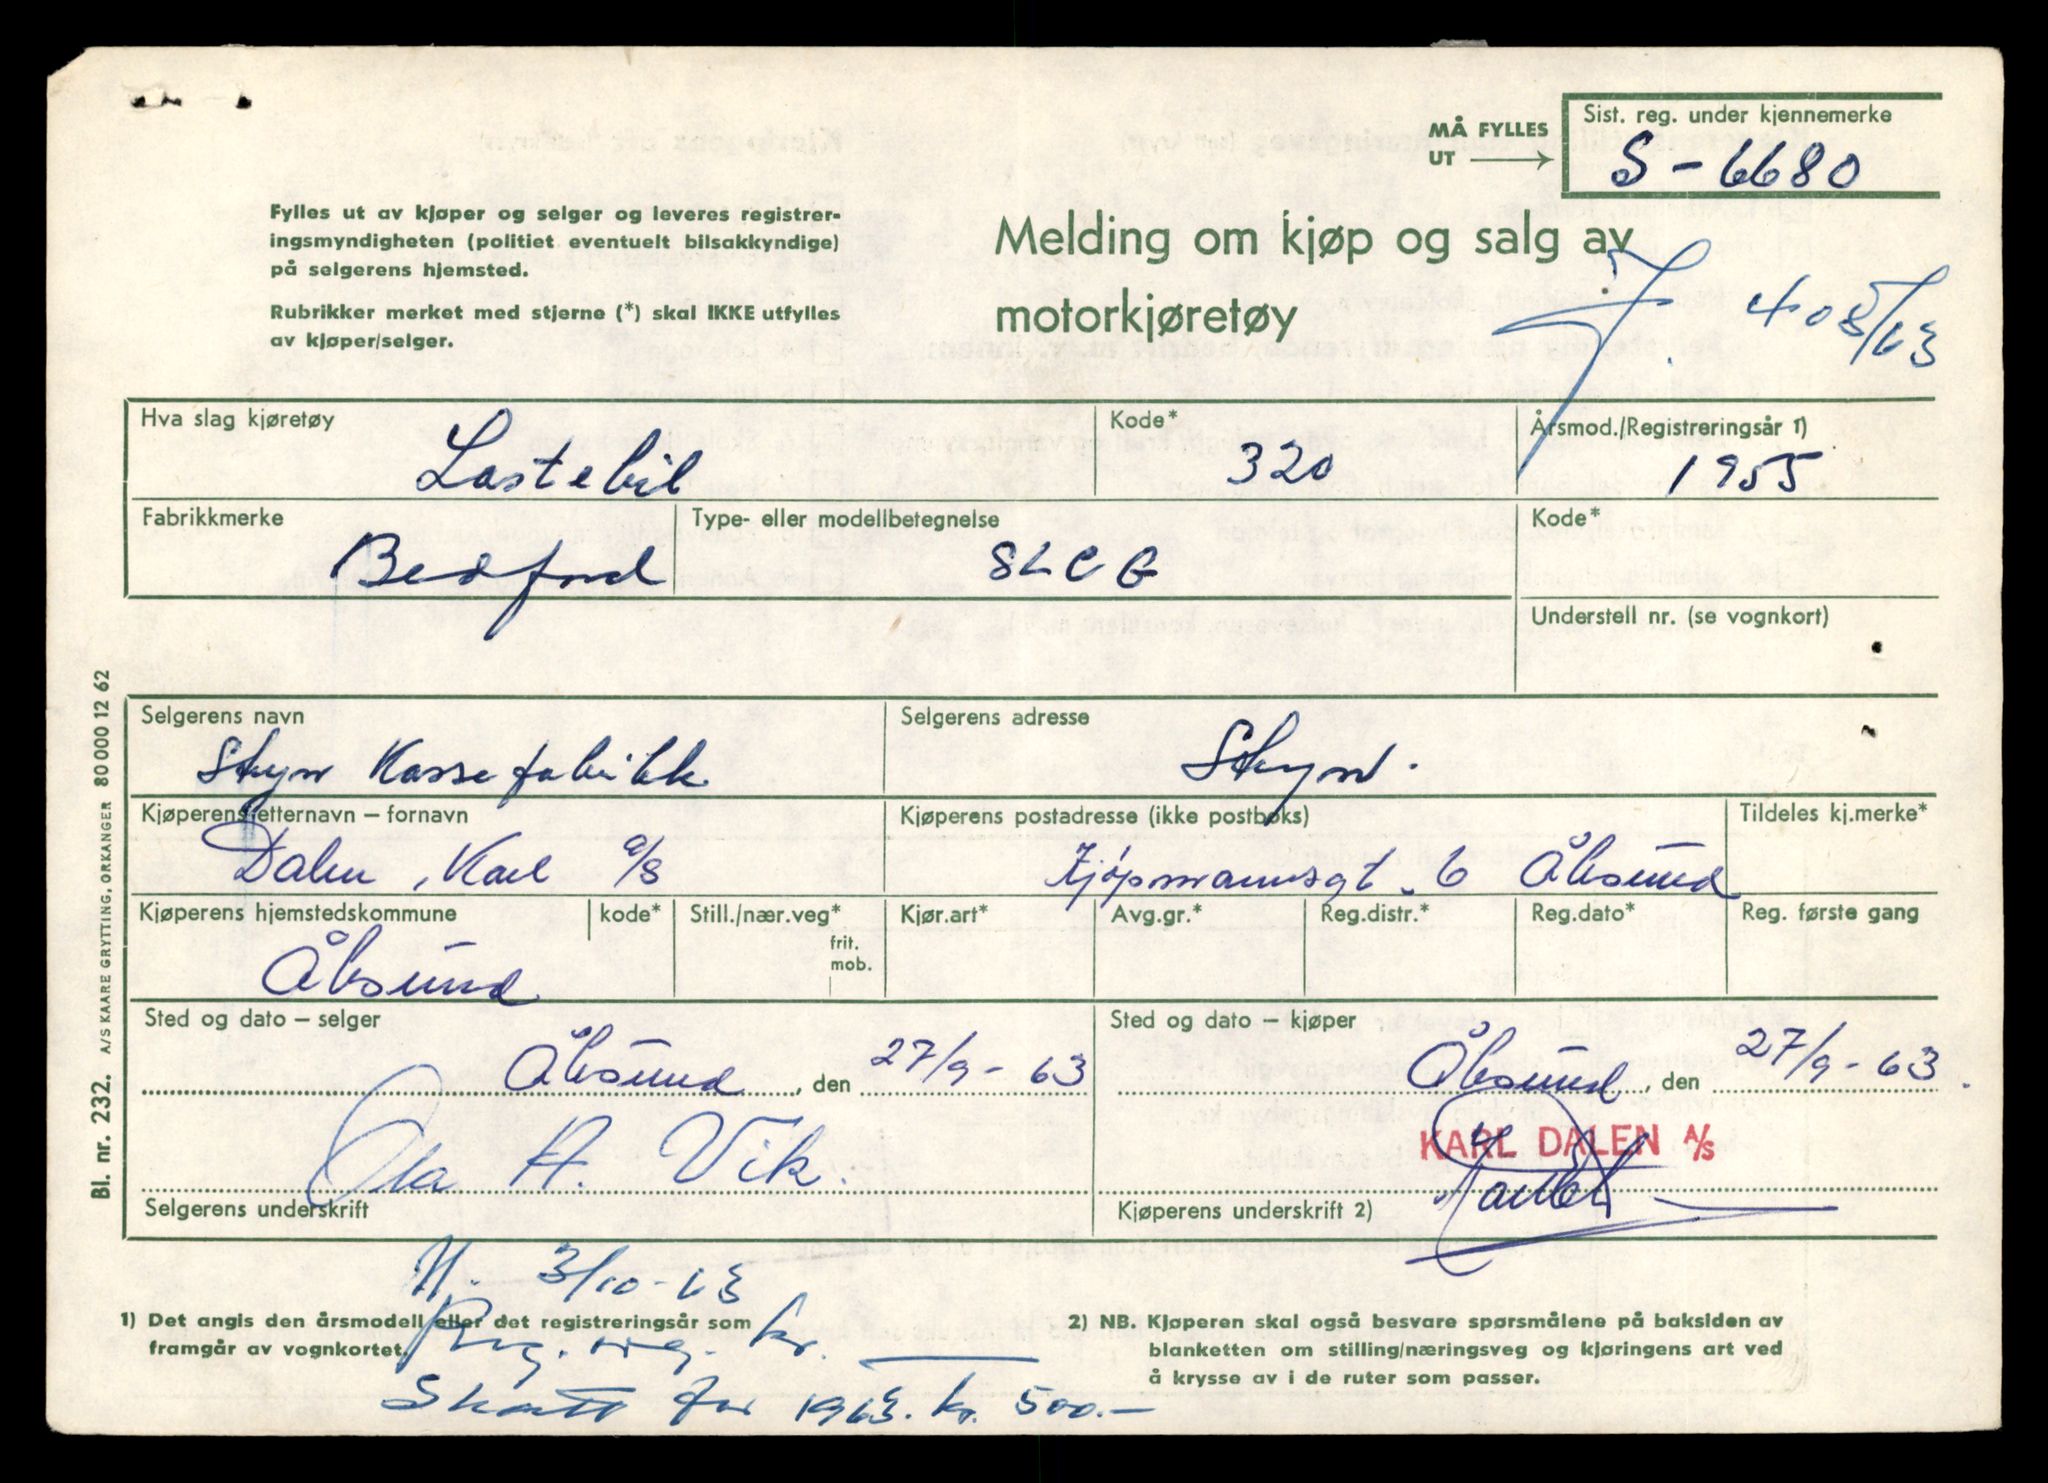 MÅ FYLLES
UT
Sist. reg. under kjennemerke
S-6680
Fylles ut av kjøper og selger og leveres registrer-
ingsmyndigheten (politiet eventuelt bilsakkyndige)
på selgerens hjemsted.
Rubrikker merket med stjerne (*) skal IKKE utfylles
av kjøper/selger.
Melding om kjøp og salg av
motorkjøretøy
J. 405/63
Hva slag kjøretøy
Lastebil
Kode*
320
Årsmod./Registreringsår 1)
1955
Fabrikkmerke
Bedford
Type- eller modellbetegnelse
SLCG
Kode*
Understell nr. (se vognkort)
Selgerens navn
Stryn Kassefabrikk
Selgerens adresse
Stryn.
Kjøperens etternavn – fornavn
Dalen, Karl A/S
Kjøperens postadresse (ikke postboks)
Kjøpmannsgt. 6 Ålesund
Tildeles kj.merke*
Kjøperens hjemstedskommune
Ålesund
kode*
Still./nær.veg*
frit.
mob.
Kjør.art*
Avg.gr.*
Reg.distr.*
Reg.dato*
Reg. første gang
Sted og dato – selger
Ålesund, den 27/9-63
Sted og dato – kjøper
Ålesund, den 27/9-63.
Ola A. Vik.
Selgerens underskrift
KARL DALEN A/S
Kjøperens underskrift 2)
N. 3/10-63
1) Det angis den årsmodell eller det registreringsår som
framgår av vognkortet.
2) NB. Kjøperen skal også besvare spørsmålene på baksiden av
blanketten om stilling/næringsveg og kjøringens art ved
å krysse av i de ruter som passer.
kr.
Skatt for 1963. kr. 500.-
Bl. nr. 232. A/S KAARE GRYTTING, ORKANGER 80 000 12 62